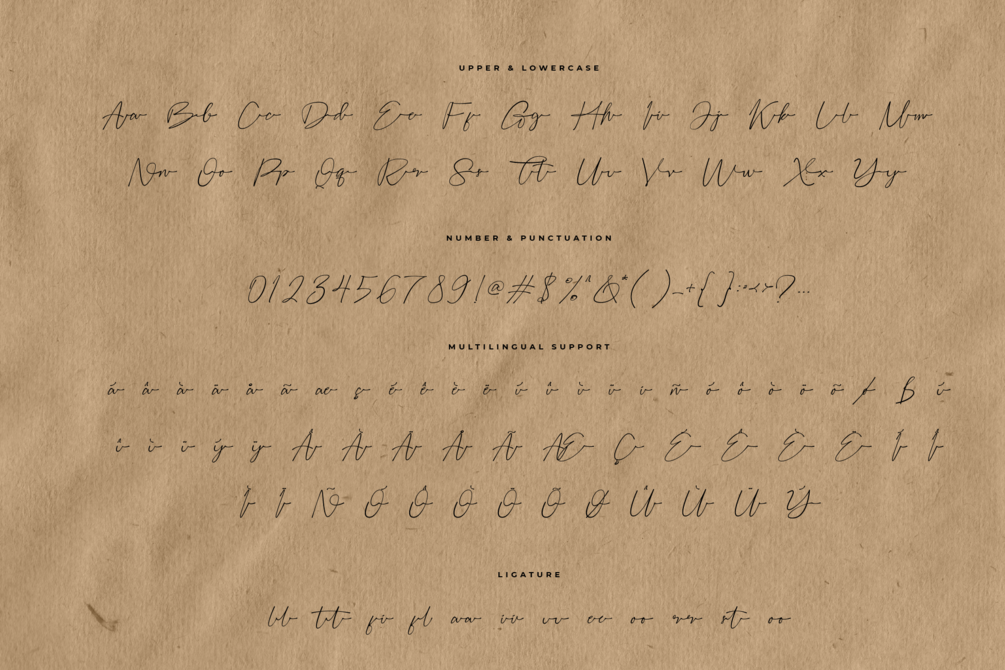 UPPER & LOWERCASE
Aa Bb Cc Dd Ee Ff Gg Hh Ii Jj Kk Ll Mm
Nn Oo Pp Qq Rr Ss Tt Uu Vv Ww Xx Yy
NUMBER & PUNCTUATION
0123456789!@#$%^&*()_-+{}:;<>?...
MULTILINGUAL SUPPORT
á â à ä å ã æ ç é ê è ë í î ì ï ı ñ ó ô ò ö õ ø ß ú
û ù ü ý ÿ Á Â À Ä Å Ã Æ Ç É Ê È Ë Í Î
Ì Ï Ñ Ó Ô Ò Ö Õ Ø Û Ù Ü Ý
LIGATURE
ll tt fi fl aa ii uu ee oo rr st oo